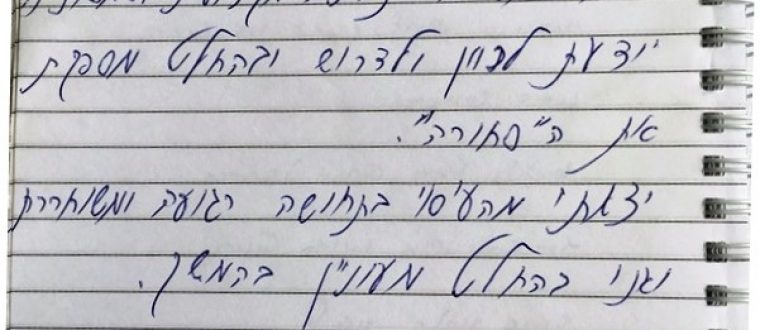 יודעת לכוון ולדרוש ובהחלט מספקת
את ה"סחורה".
יצאתי מהעיסוי בתחושה רגועה ומשוחררת
ואני בהחלט מעוניין בהמשך.